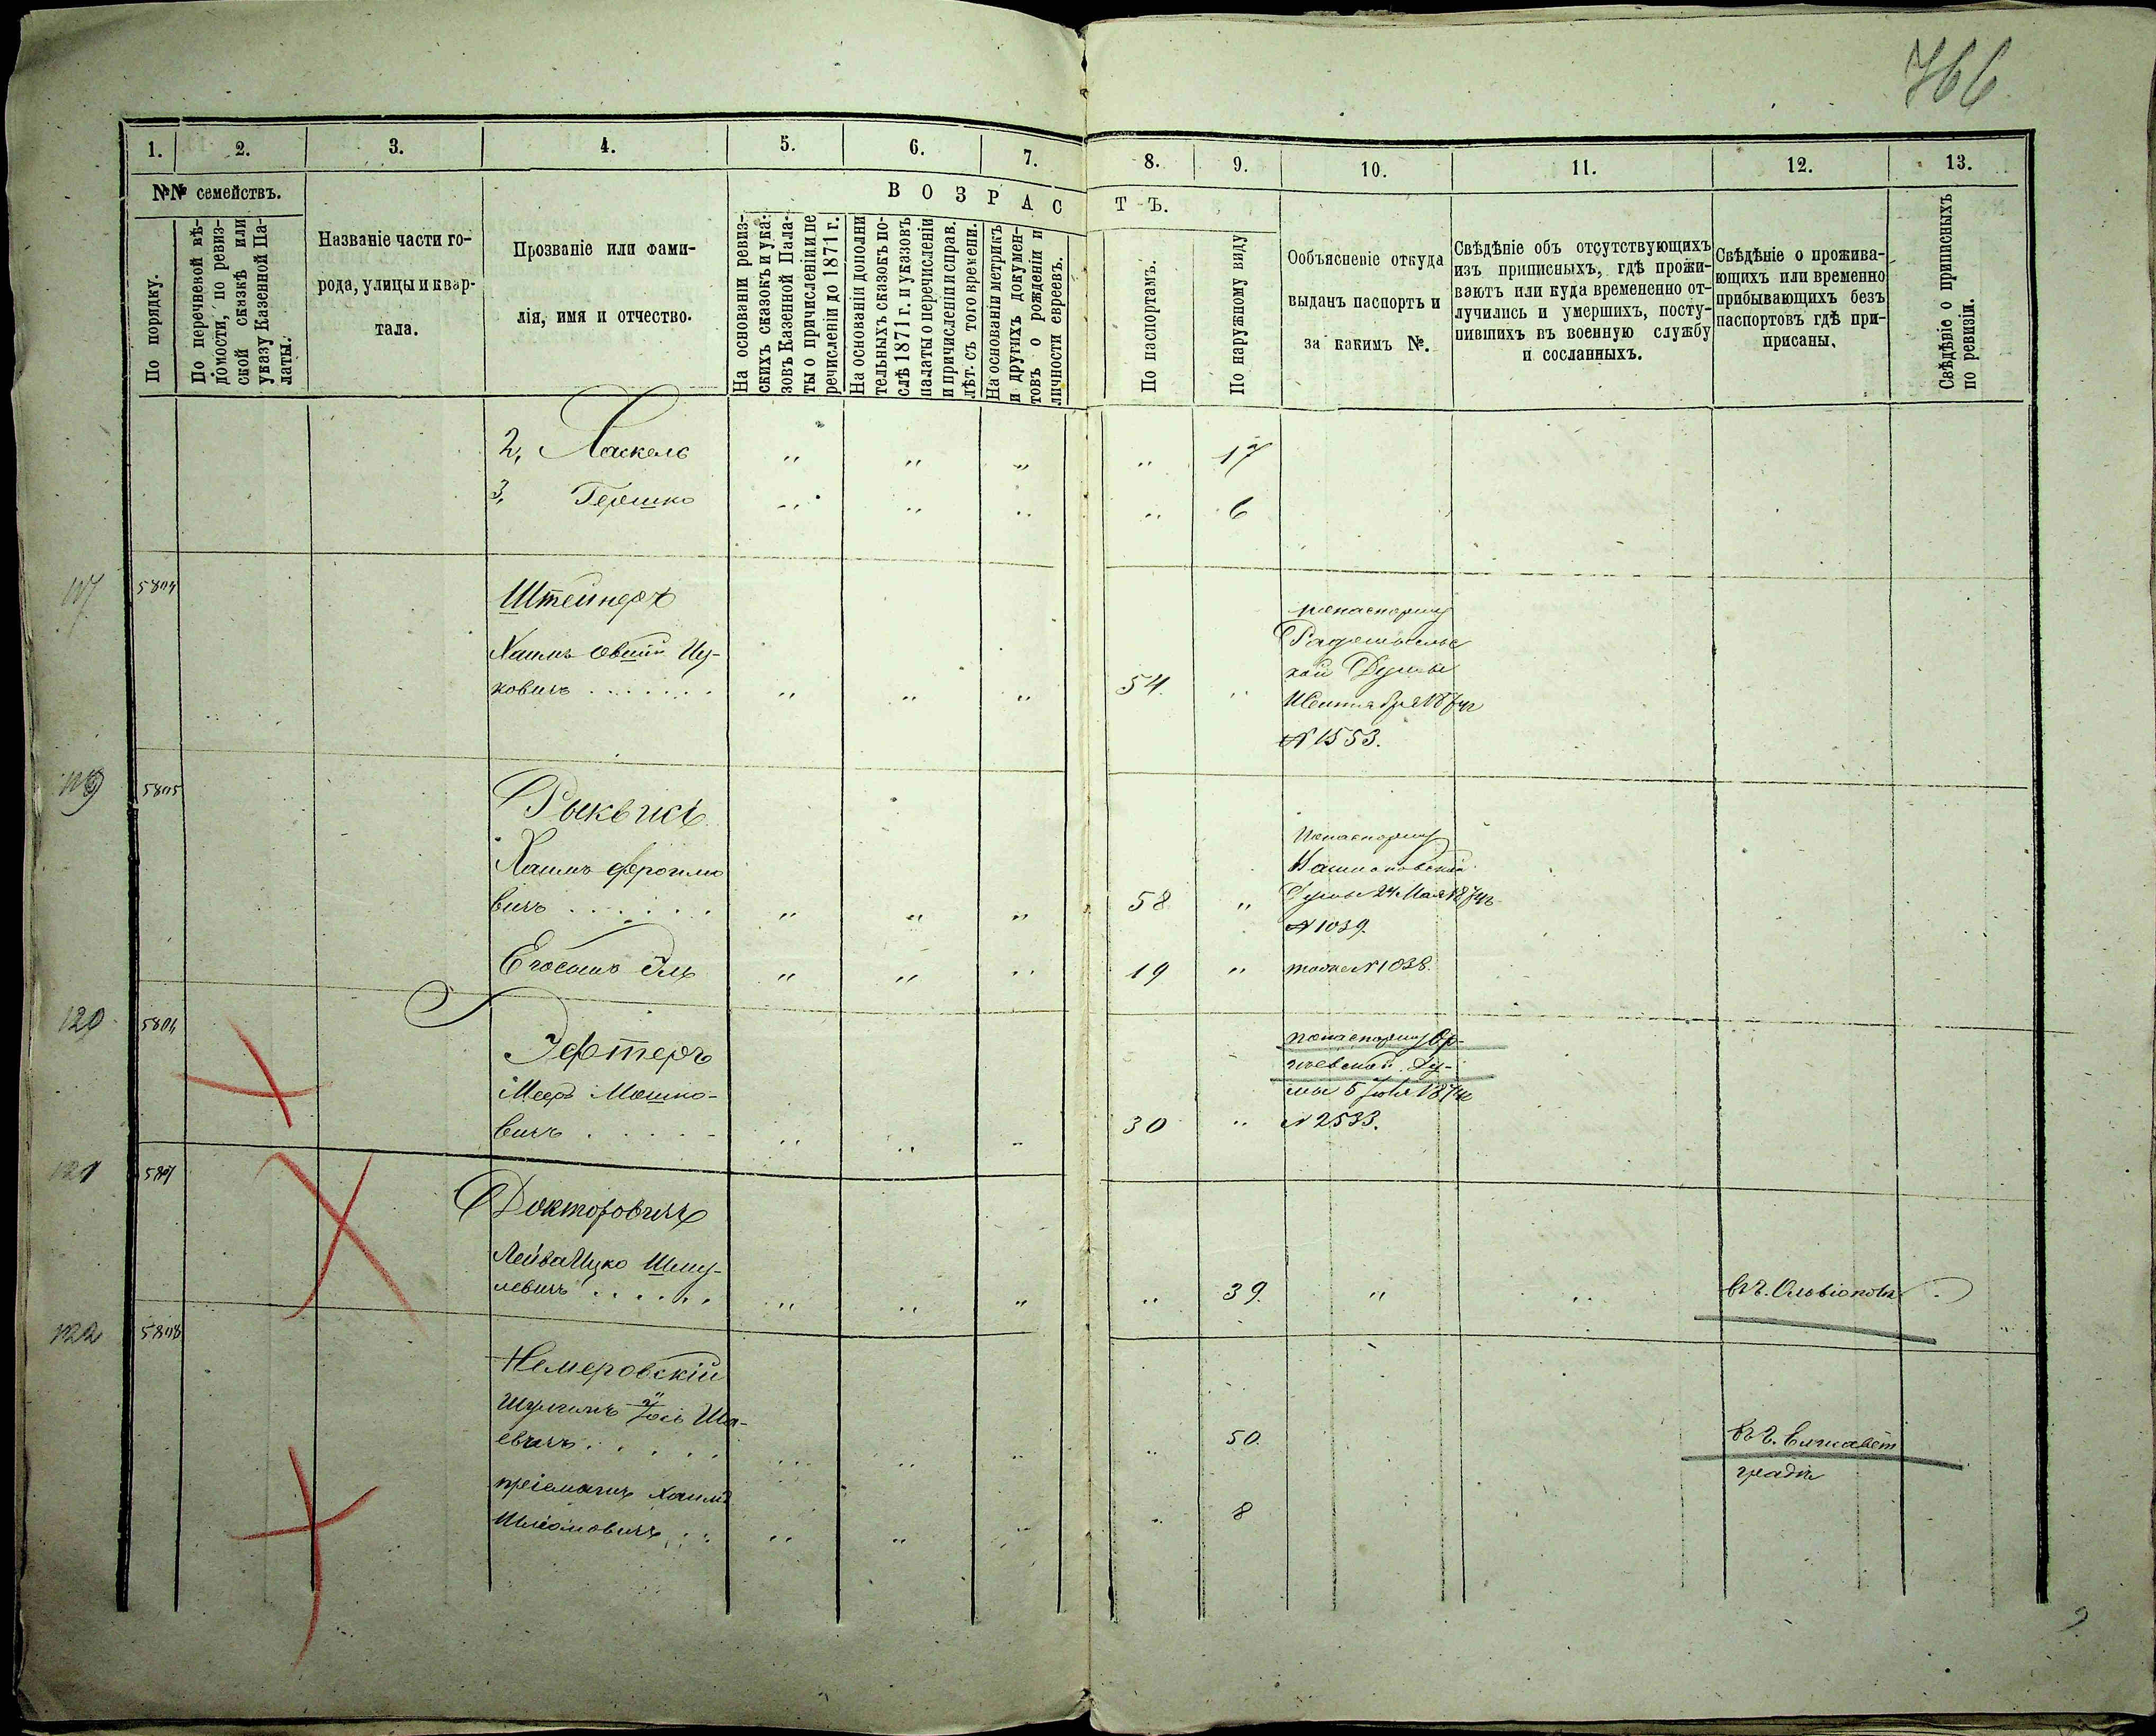 766
1. 2. 3. 4. 5. 6. 7. 8. 9. 10. 11. 12. 13.
№№ семействъ.
ВОЗРАСТЪ.
По порядку.
По перечневой вѣ-
домости, по ревиз-
ской сказкѣ или
указу Казенной Па-
латы.
Названіе части го-
рода, улицы и квар-
тала.
Прозваніе или фами-
лія, имя и отчество.
На основаніи ревиз-
скихъ сказокъ и ука-
зовъ Казенной Пала-
ты о причисленіи и пе
речисленіи до 1871 г.
На основаніи дополни
тельныхъ сказокъ по-
слѣ 1871 г. и указовъ
палаты о перечисленіи
и причисленіи и справ.
лѣт. съ того времени.
На основаніи метрикъ
и другихъ докумен-
товъ о рожденіи и
личности евреевъ.
По паспортамъ.
По наружному виду
Ообъясненіе откуда
выданъ паспортъ и
за какимъ №.
Свѣдѣніе объ отсутствующихъ
изъ приписныхъ, гдѣ прожи-
ваютъ или куда времененно от-
лучились и умершихъ, посту-
пившихъ въ военную службу
и сосланныхъ.
Свѣдѣніе о прожива-
ющихъ или временно
прибывающихъ безъ
паспортовъ гдѣ при-
присаны.
Свѣдѣніе о приписныхъ
по ревизіи.
2, Хаскель " " " " 17
3, Гершко " " " " 6
Штейнеръ
Хаимъ Овшій Иц-
ковичъ " " " 54. "
по паспорту
Радомысльс
кой Думы
№ 1553.
5805
Хаимъ
вичъ " " " 58 "
По паспорту
Думы 24 Мая 1874г
№ 1039.
" " " 19 " тоже № 1038.
120
Эфтеръ
Мееръ Мошко-
вичъ " " " 30 "
по паспорту Ор-
гѣевской Ду-
мы 5 Іюля 1874г
№ 2533.
121
Докторовичъ
Лейба Ицко Шму-
левичъ " " " " 39. " " въ г. Ольвіополѣ
122 5808
Немеровскій
Шулимъ Іось Ша-
евичъ " " " " 50. въ г. Елисавет
градѣ
пріемышъ Хаимъ
Шліомовичъ " " " " 8